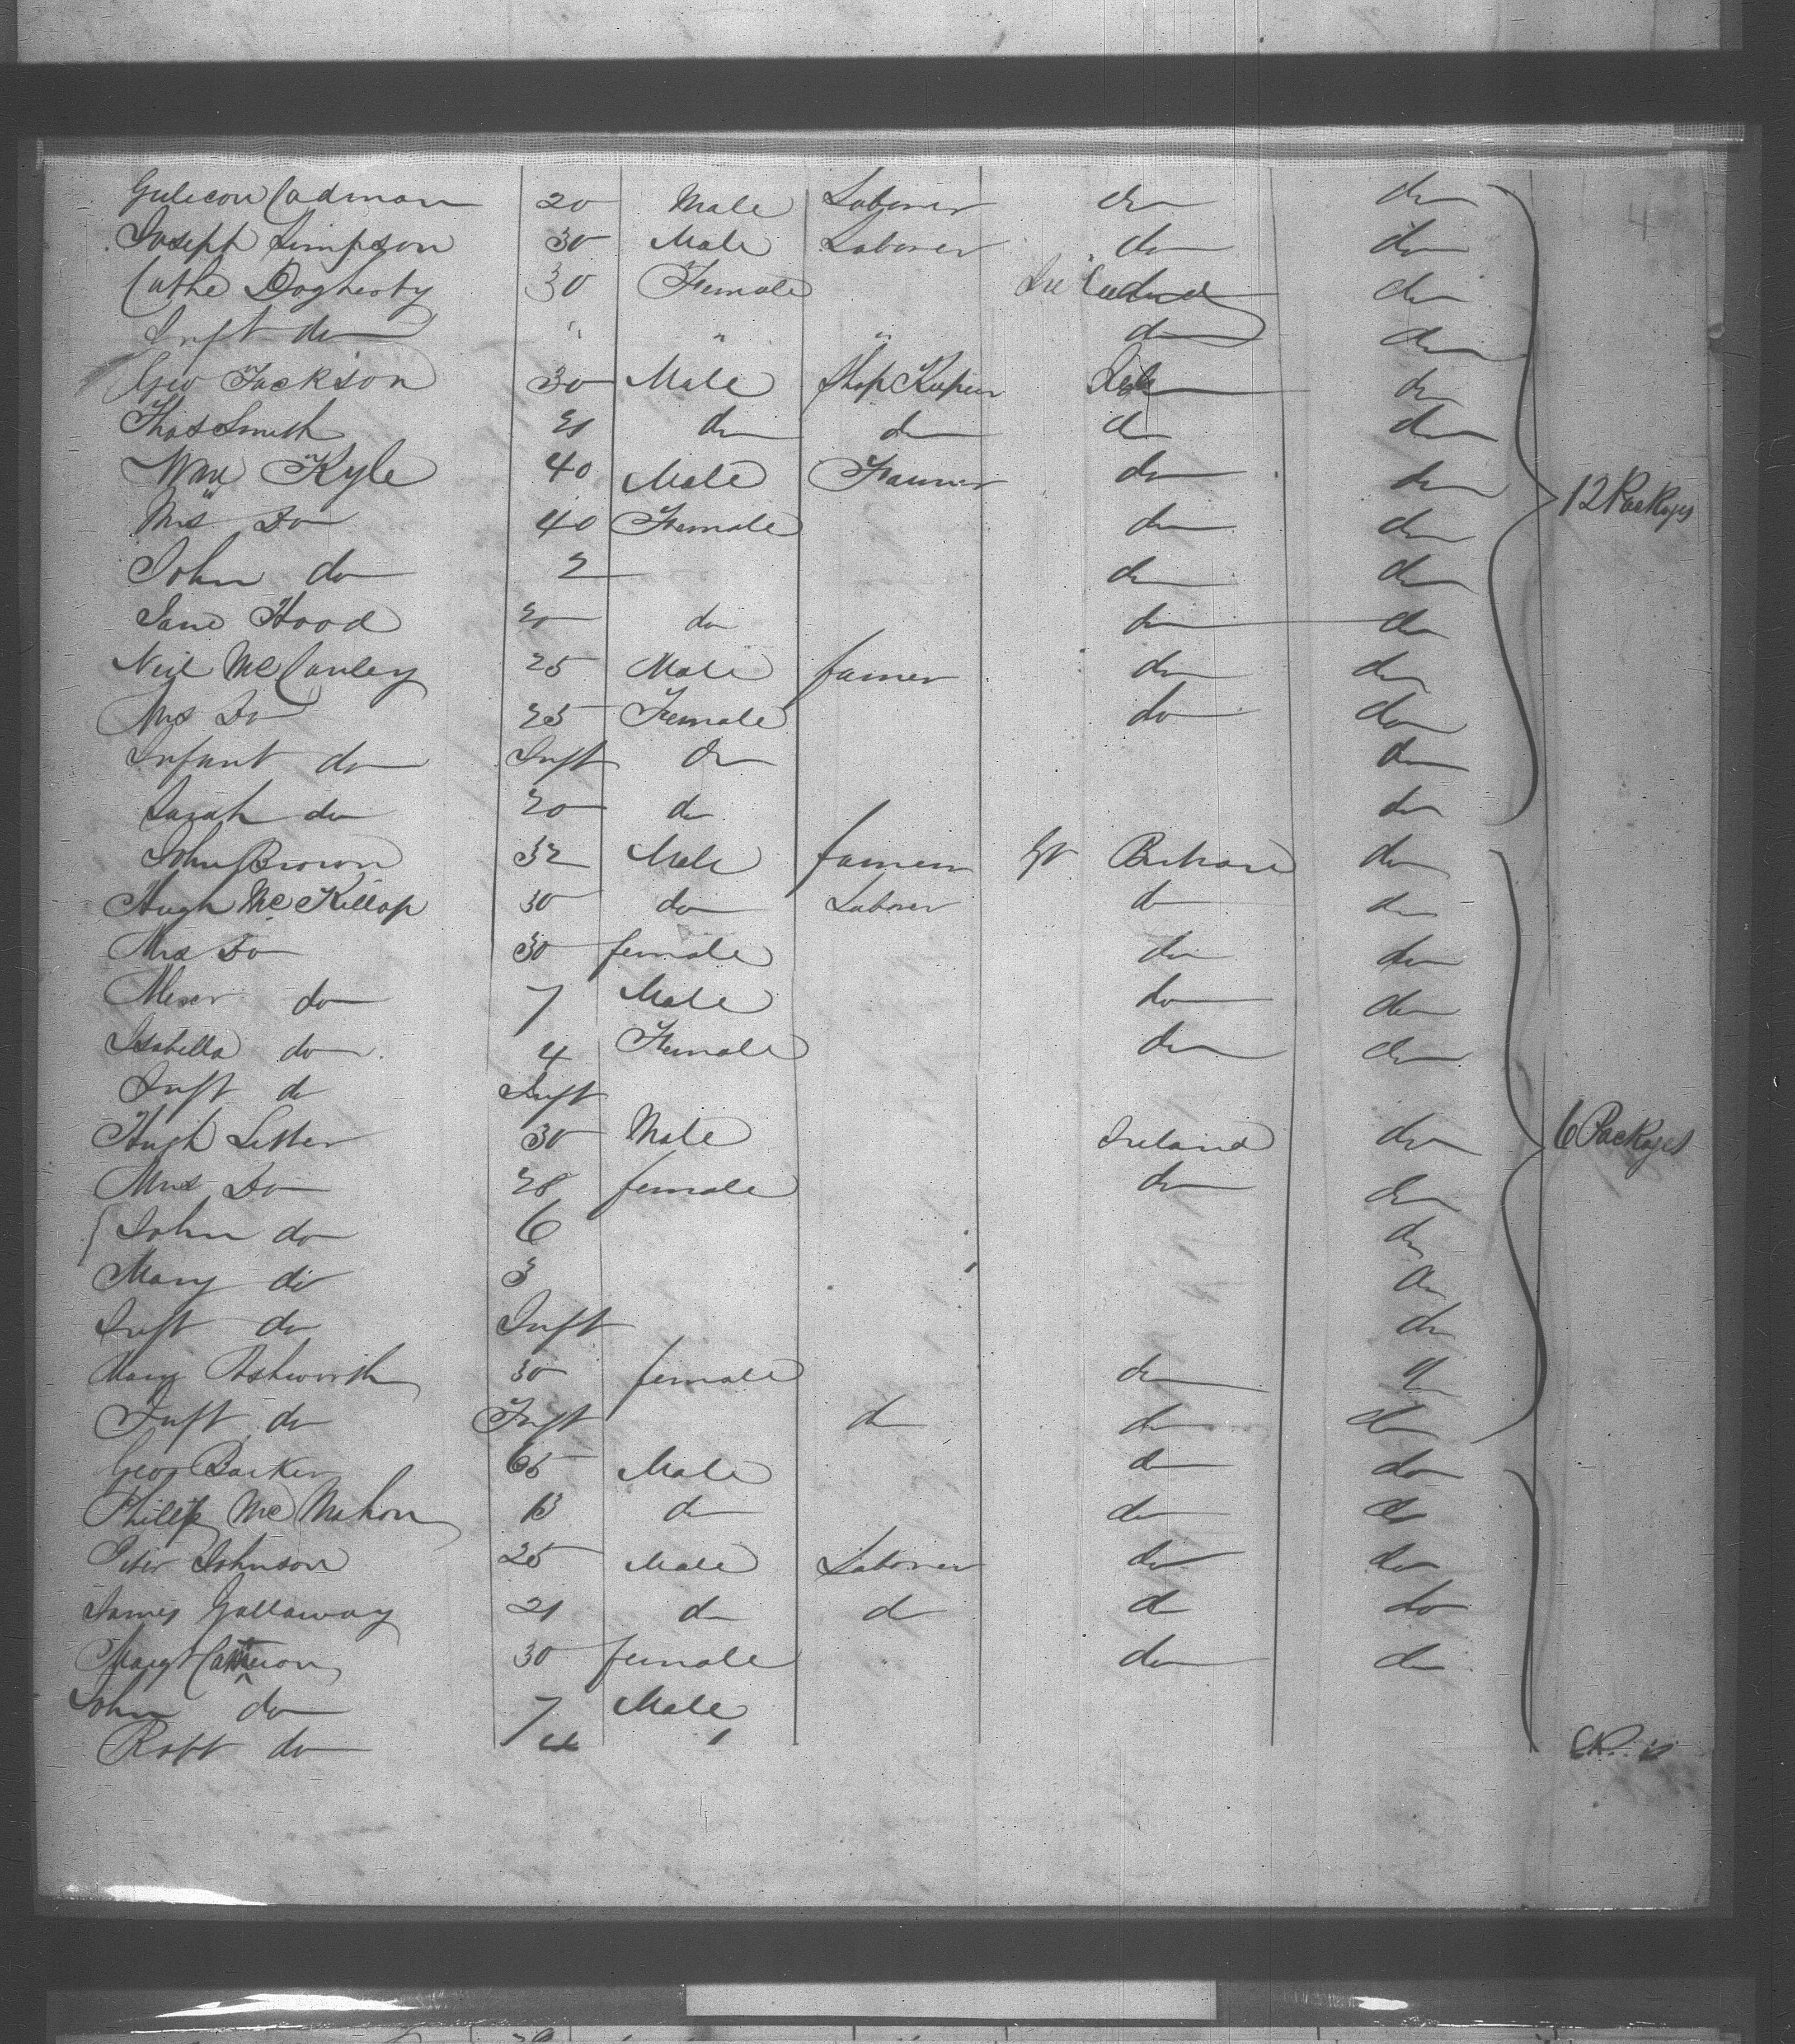 Cadman 20 Male Laborer do do
Joseph Simpson 30 Male Laborer do do
Cathe Dogherty 30 Female Ireland do
Inft do " " " do do
Geo Jackson 30 Male Shop Keeper do
Thos Smith 21 do do do do
Wm Kyle 40 Male Farmer do do
12 Packages
Mrs Do 40 Female do do
John do 2 do do
Jane Hood 20 do do do
Neil McCauley 25 Male farmer do do
Mrs Do 25 Female do do
Infant do Inft do do
Sarah do 20 do do
John Brown 32 Male farmer Gt Britain do
Hugh McKillop 30 do Laborer do do
Mrs Do 30 female do do
do 7 Male do do
Isabella do 4 Female do do
Inft do Inft
Hugh Sitter 30 Male Ireland do
6 Packages
Mrs Do 28 female do do
John do 6 do
Mary do 3 do
Inft do Inft do
Mary Ashworth 30 female do do
Inft do Inft do do do
Geo Barker 65 Male do do
Philip McMahon 13 do do do
Peter Johnson 25 Male Laborer do do
James Gallaway 21 do do do do
Margt Cameron 30 female do do
John do 7 Male
Robt do 4